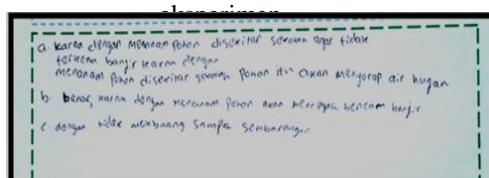 eksperimen
a. karna dengan menanam pohon disekitar sekolah agar tidak
terkena banjir karna dengan
menanam pohon disekitar sekolah pohon itu akan menyerap air hujan
b. benar, karna dengan menanam pohon akan mencegah bencana banjir
c dengan tidak membuang sampah sembarangan